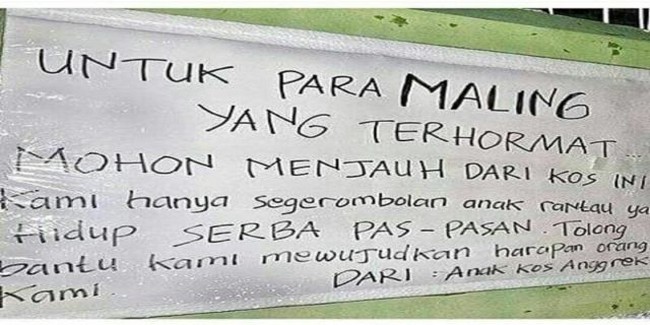 UNTUK PARA MALING
YANG TERHORMAT...
MOHON MENJAUH DARI KOS INI
Kami hanya segerombolan anak rantau ya
Hidup SERBA PAS-PASAN. Tolong
bantu kami mewujudkan harapan orang
Kami. DARI : Anak Kos Anggrek